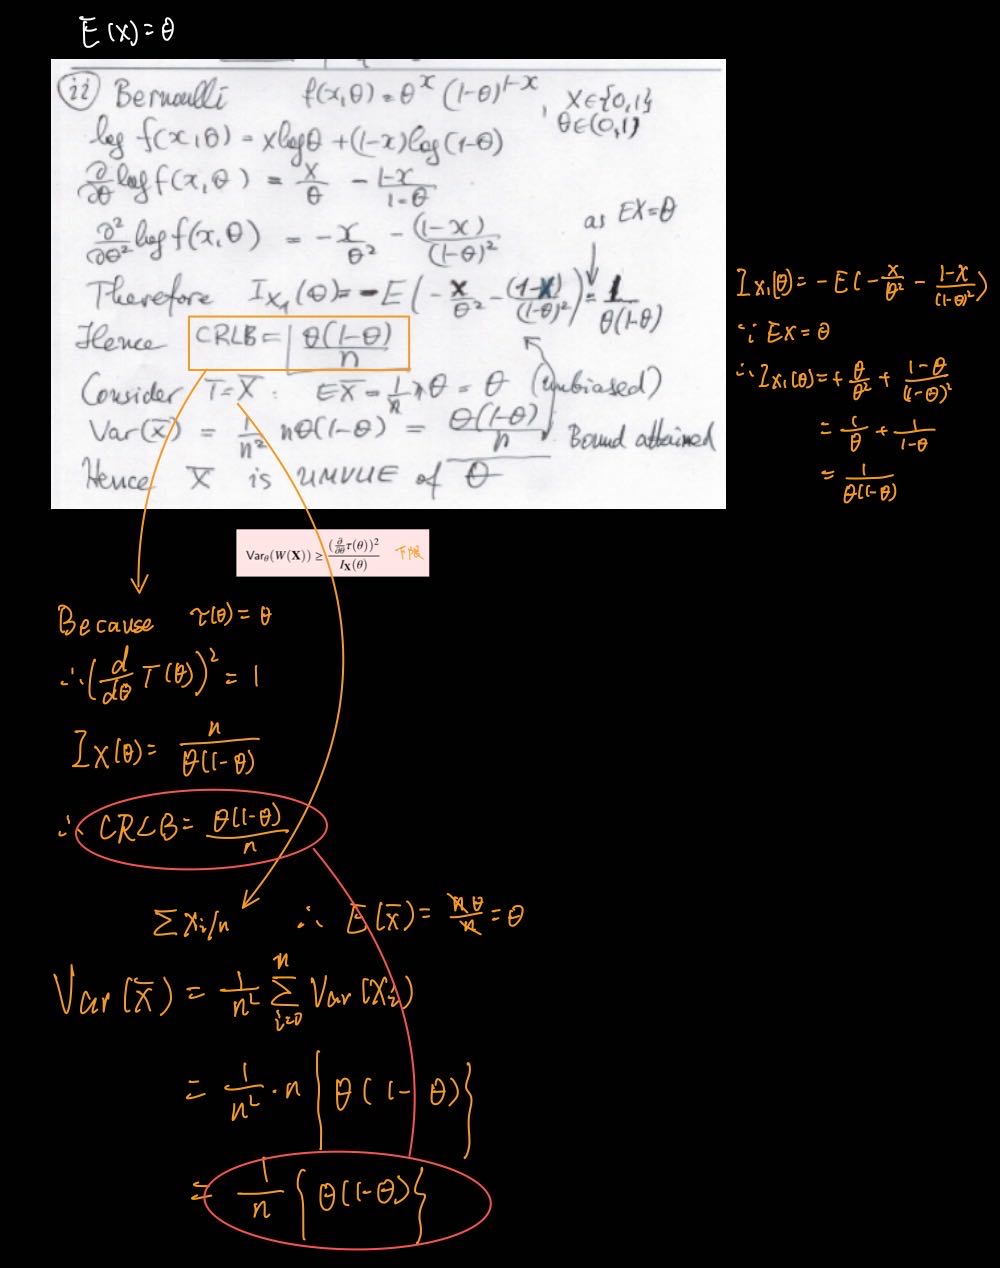 E(X)=θ
ii Bernoulli f(x,θ)=θ^x (1-θ)^{1-x}, x∈{0,1}
θ∈(0,1)
log f(x,θ) = x log θ + (1-x) log (1-θ)
∂/∂θ log f(x,θ) = x/θ - (1-x)/(1-θ)
∂²/∂θ² log f(x,θ) = -x/θ² - (1-x)/(1-θ)²
as EX=θ
Therefore I_{X₁}(θ) = -E(-x/θ² - (1-x)/(1-θ)²) = 1/θ(1-θ)
Hence CRLB = θ(1-θ)/n
Consider T=X̄: EX̄ = 1/n nθ = θ (unbiased)
Var(X̄) = 1/n² nθ(1-θ) = θ(1-θ)/n Bound attained
Hence X̄ is UMVUE of θ
I_{X₁}(θ) = -E(-x/θ² - (1-x)/(1-θ)²)
∵ EX=θ
∴ I_{X₁}(θ) = +θ/θ² + (1-θ)/(1-θ)²
= 1/θ + 1/(1-θ)
= 1/θ(1-θ)
Var_θ(W(X)) ≥ (∂/∂θ τ(θ))² / I_X(θ) 下限
Because τ(θ)=θ
∴ (d/dθ T(θ))² = 1
I_X(θ) = n/θ(1-θ)
∴ CRLB = θ(1-θ)/n
Σxi/n ∴ E(x̄) = nθ/n = θ
Var(x̄) = 1/n² Σ_{i=0}^{n} Var(Xi)
= 1/n² · n {θ(1-θ)}
= 1/n {θ(1-θ)}